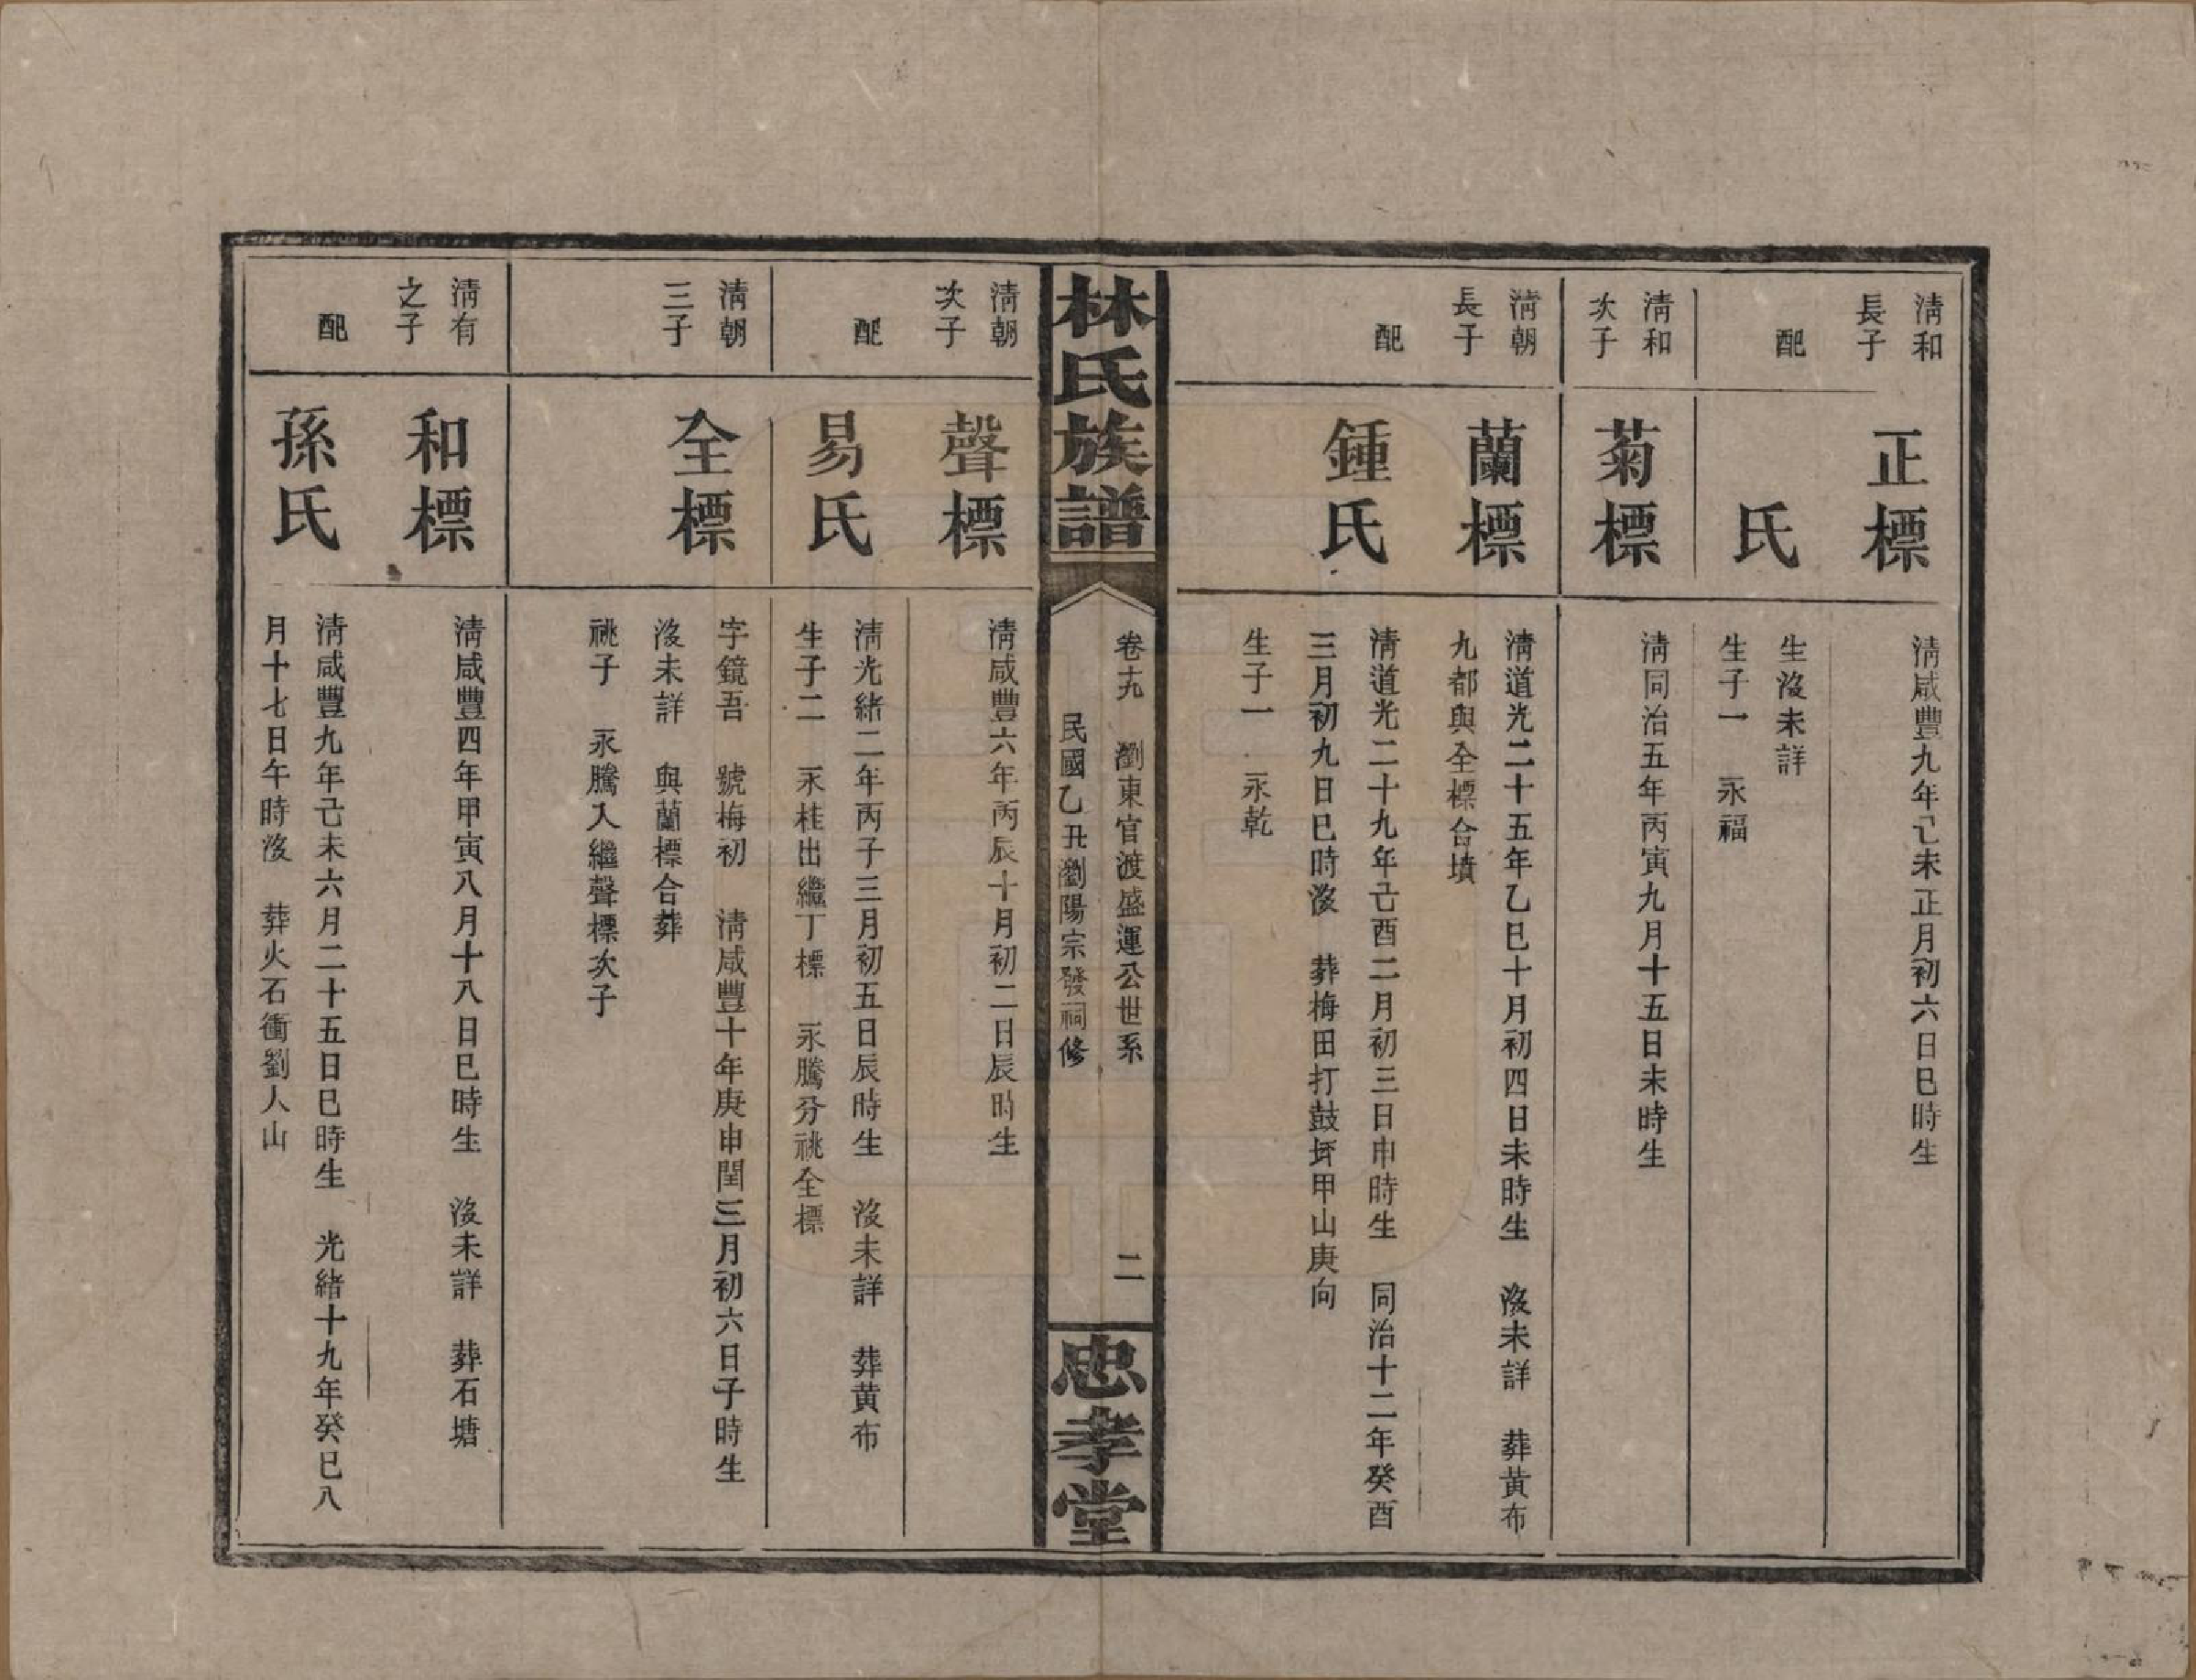 清和
長子
正標
清咸豐九年己未正月初六日巳時生
配
氏
生沒未詳
生子一　永福
清和
次子
菊標
清同治五年丙寅九月十五日未時生
清朝
長子
蘭標
清道光二十五年乙巳十月初四日未時生　沒未詳　葬黃布
九都與全標合墳
配
鍾氏
清道光二十九年己酉二月初三日申時生　同治十二年癸酉
三月初九日巳時沒　葬梅田打鼓坏甲山庚向
生子一　永乾
林氏族譜
卷十九　瀏東官渡盛運公世系
民國乙丑瀏陽宗發祠修
二
忠孝堂
清朝
次子
聲標
清咸豐六年丙辰十月初二日辰時生
配
易氏
清光緒二年丙子三月初五日辰時生　沒未詳　葬黃布
生子二　永桂出繼丁標　永騰分祧全標
清朝
三子
全標
字鏡吾　號梅初　清咸豐十年庚申閏三月初六日子時生
沒未詳　與蘭標合葬
祧子　永騰入繼聲標次子
清有
之子
和標
清咸豐四年甲寅八月十八日巳時生　沒未詳　葬石塘
配
孫氏
清咸豐九年己未六月二十五日巳時生　光緒十九年癸巳八
月十七日午時沒　葬火石衝劉人山